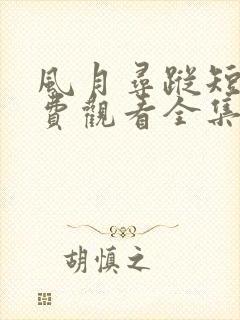 風月尋蹤短
費觀看全集
胡慎之